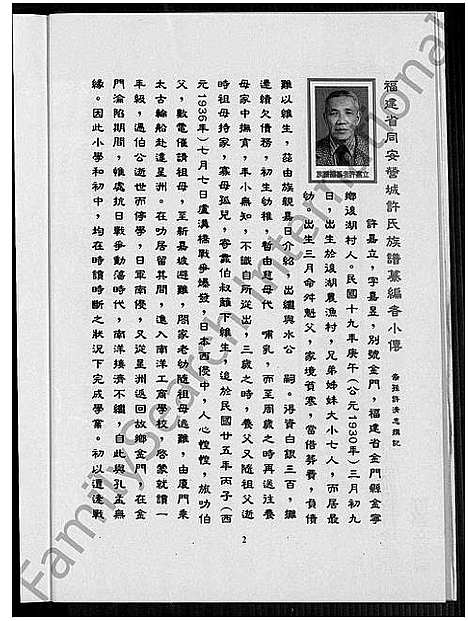 福建省同安營城許氏族譜纂編者小傳
許嘉立，字嘉昱，別號金門，福建省金門縣金寧
鄉後湖村人。民國十九年庚午（公元1930年）三月初九
日，出生於後湖農漁村，兄弟姊妹大小七人，而居最
幼，出生三月命舛剋父，家境貧寒，當借葬費，負債
難以維生，茲由族親昌日介紹，出繼與水公 嗣。得資白銀三百，攤
還積欠債務，初生幼稚，暫由慈母代 哺乳，而至周歲之時再送往養
母家中撫育，年小無知，不識自所從出，三歲之時，養父又隨祖父逝
時祖母持家，寡母孤兒，寄靠伯叔籬下維生，迨於民國廿五年丙子（西
元1936年）七月七日盧溝橋戰爭爆發，日本西侵中，人心惶惶，旅叻伯
父，數電催請祖母，至新嘉坡避難，閤家老幼隨祖母逃難，由廈門乘
太古輪船赴達星洲。在叻居留其間，進入南洋工商學校，啓蒙就讀一
年級，遇伯公逝世而停學，日軍南侵，又從星洲返回故鄉金門，在金
門淪陷期間，惟處抗日戰爭動蕩時代，南洋接濟不繼，自此與孔孟無
緣。因此小學和初中，均在時讀時斷之狀況下完成學業。初以遭逢戰
立嘉許者編纂譜族
2
FamilySearch International